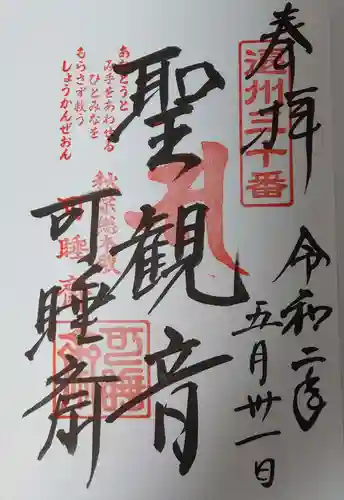 奉拝
遠州三十番
令和二年
五月卅一日
聖観音
あなとうと
み手をあわせる
ひとみなを
もらさず救う
しょうかんぜおん
秋葉総本殿
可睡齋
可睡斎